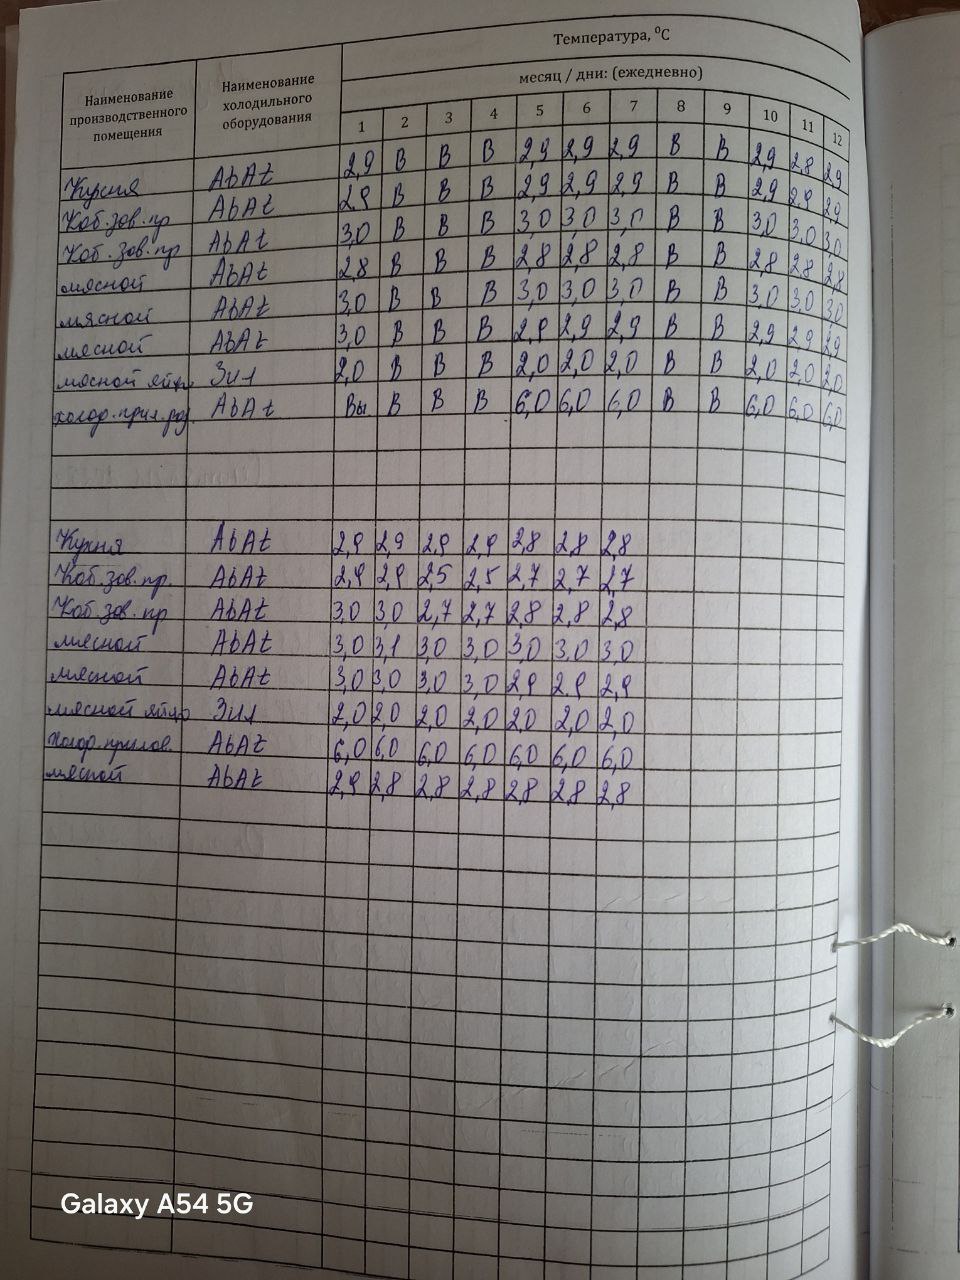 Температура, ⁰С
месяц / дни: (ежедневно)
Наименование производственного помещения Наименование холодильного оборудования 1 2 3 4 5 6 7 8 9 10 11 12
Кухня AbAt 2,9 В В В 2,9 2,9 2,9 В В 2,9 2,8 2,9
Каб.зав.пр AbAt 2,9 В В В 2,9 2,9 2,9 В В 2,9 2,9 2,9
Каб.зав.пр AbAt 3,0 В В В 3,0 3,0 3,0 В В 3,0 3,0 3,0
мясной AbAt 2,8 В В В 2,8 2,8 2,8 В В 2,8 2,8 2,8
мясной AbAt 3,0 В В В 3,0 3,0 3,0 В В 3,0 3,0 3,0
мясной AbAt 3,0 В В В 2,9 2,9 2,9 В В 2,9 2,9 2,9
мясной Зил 2,0 В В В 2,0 2,0 2,0 В В 2,0 2,0 2,0
AbAt Вы В В В 6,0 6,0 6,0 В В 6,0 6,0 6,0
Кухня AbAt 2,9 2,9 2,9 2,9 2,8 2,8 2,8
Каб.зав.пр. AbAt 2,9 2,9 2,5 2,5 2,7 2,7 2,7
Каб.зав.пр AbAt 3,0 3,0 2,7 2,7 2,8 2,8 2,8
мясной AbAt 3,0 3,1 3,0 3,0 3,0 3,0 3,0
мясной AbAt 3,0 3,0 3,0 3,0 2,9 2,9 2,9
мясной Зил 2,0 2,0 2,0 2,0 2,0 2,0 2,0
AbAt 6,0 6,0 6,0 6,0 6,0 6,0 6,0
мясной AbAt 2,9 2,8 2,8 2,8 2,8 2,8 2,8
Galaxy A54 5G